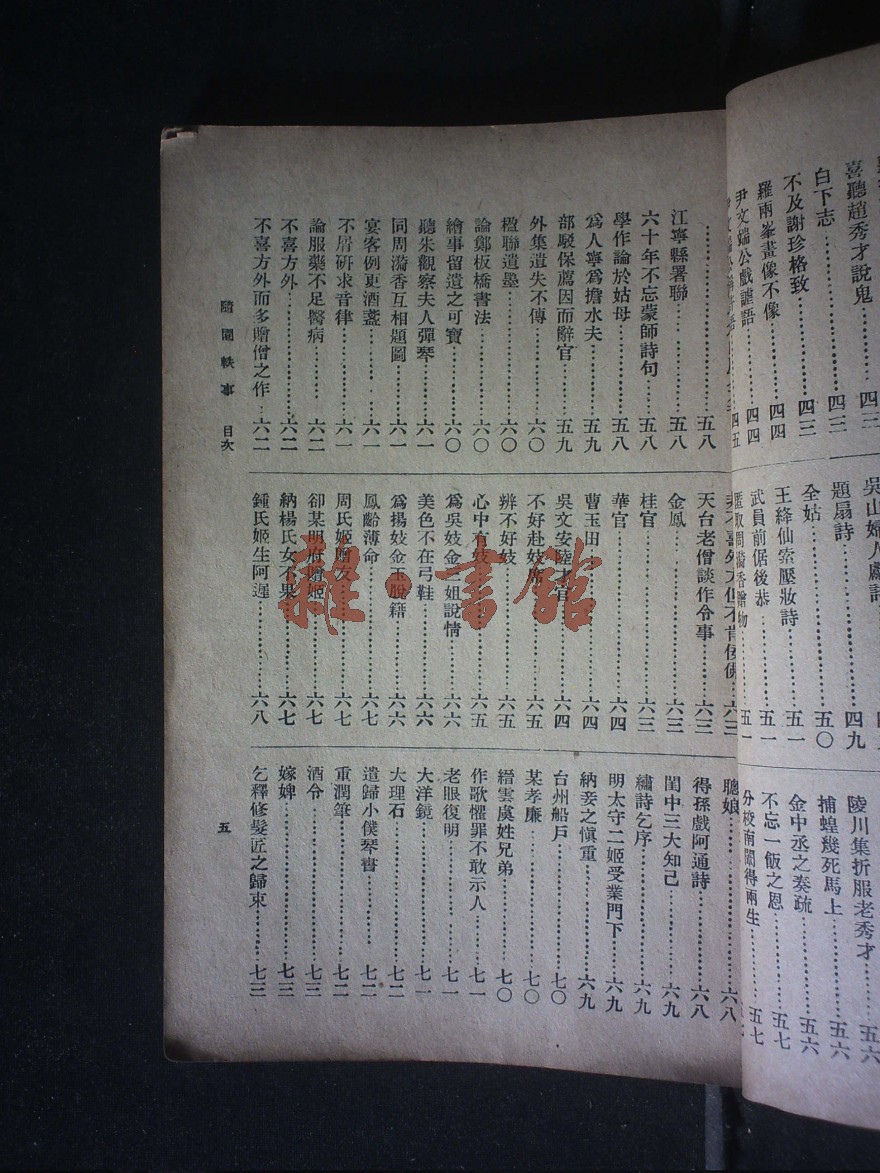 喜聽趙秀才說鬼
白下志…………四三
不及謝珍格致………四三
羅兩峯畫像不像………四四
尹文端公戲謔語………四四
四五
題扇詩…………四九
全姑…………五〇
王絳仙索壓妝詩………五一
武員前倨後恭………五一
五一
陵川集折服老秀才……五六
捕蝗幾死馬上………五六
金中丞之奏疏………五六
不忘一飯之恩………五七
分校南闈得兩生………五七
…………五八
江寧縣署聯………五八
六十年不忘蒙師詩句………五八
學作論於姑母………五八
爲人寧爲擔水夫………五九
部駁保薦因而辭官………五九
外集遺失不傳………六〇
楹聯遺墨………六〇
論鄭板橋書法………六〇
繪事留遺之可寶………六〇
聽朱觀察夫人彈琴………六一
同周漪香互相題圖………六一
宴客例更酒盞………六一
不屑研求音律………六一
論服藥不足醫病………六二
不喜方外………六二
不喜方外而多贈僧之作…六二
六三
天台老僧談作令事………六三
金鳳…………六三
桂官…………六三
華官…………六四
曹玉田…………六四
吳文安陸才官………六四
不好赴妓席………六五
辨不好妓………六五
心中有妓………六五
爲吳妓金三姐說情………六六
美色不在弓鞋………六六
爲揚妓金玉脫籍………六六
鳳齡薄命………六七
周氏姬贈友………六七
卻某明府贈姬………六七
納楊氏女不果………六七
鍾氏姬生阿遲………六八
聰娘…………六八
得孫戲阿通詩………六八
閨中三大知己………六九
繡詩乞序………六九
明太守二姬受業門下…六九
納妾之愼重………六九
台州船戶………七〇
某孝廉…………七〇
縉雲虞姓兄弟………七〇
作歌懼罪不敢示人………七一
老眼復明………七一
大洋鏡…………七一
大理石…………七二
遣歸小僕琴書………七二
重潤筆…………七二
酒令…………七三
嫁婢…………七三
乞釋修髮匠之歸束………七三
隨園軼事 目次
五
雜·書館